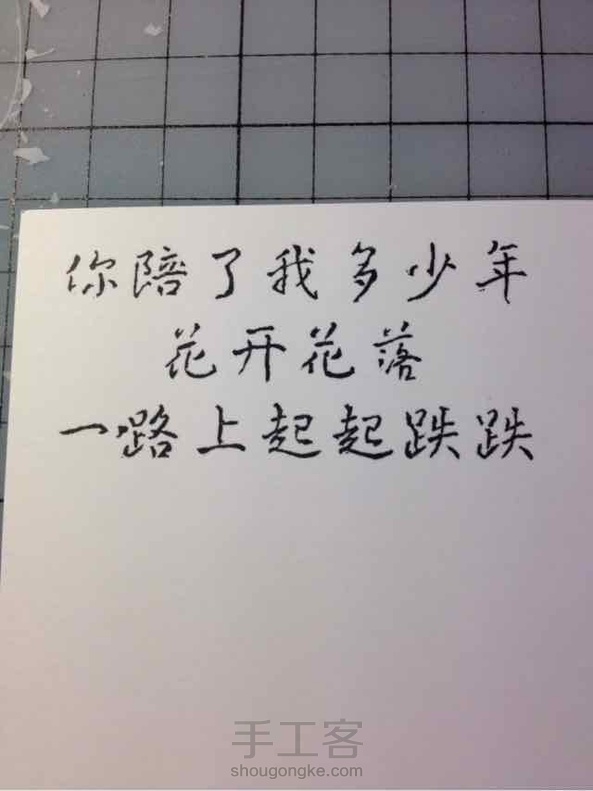 你陪了我多少年
花开花落
一路上起起跌跌
手工客
shougongke.com